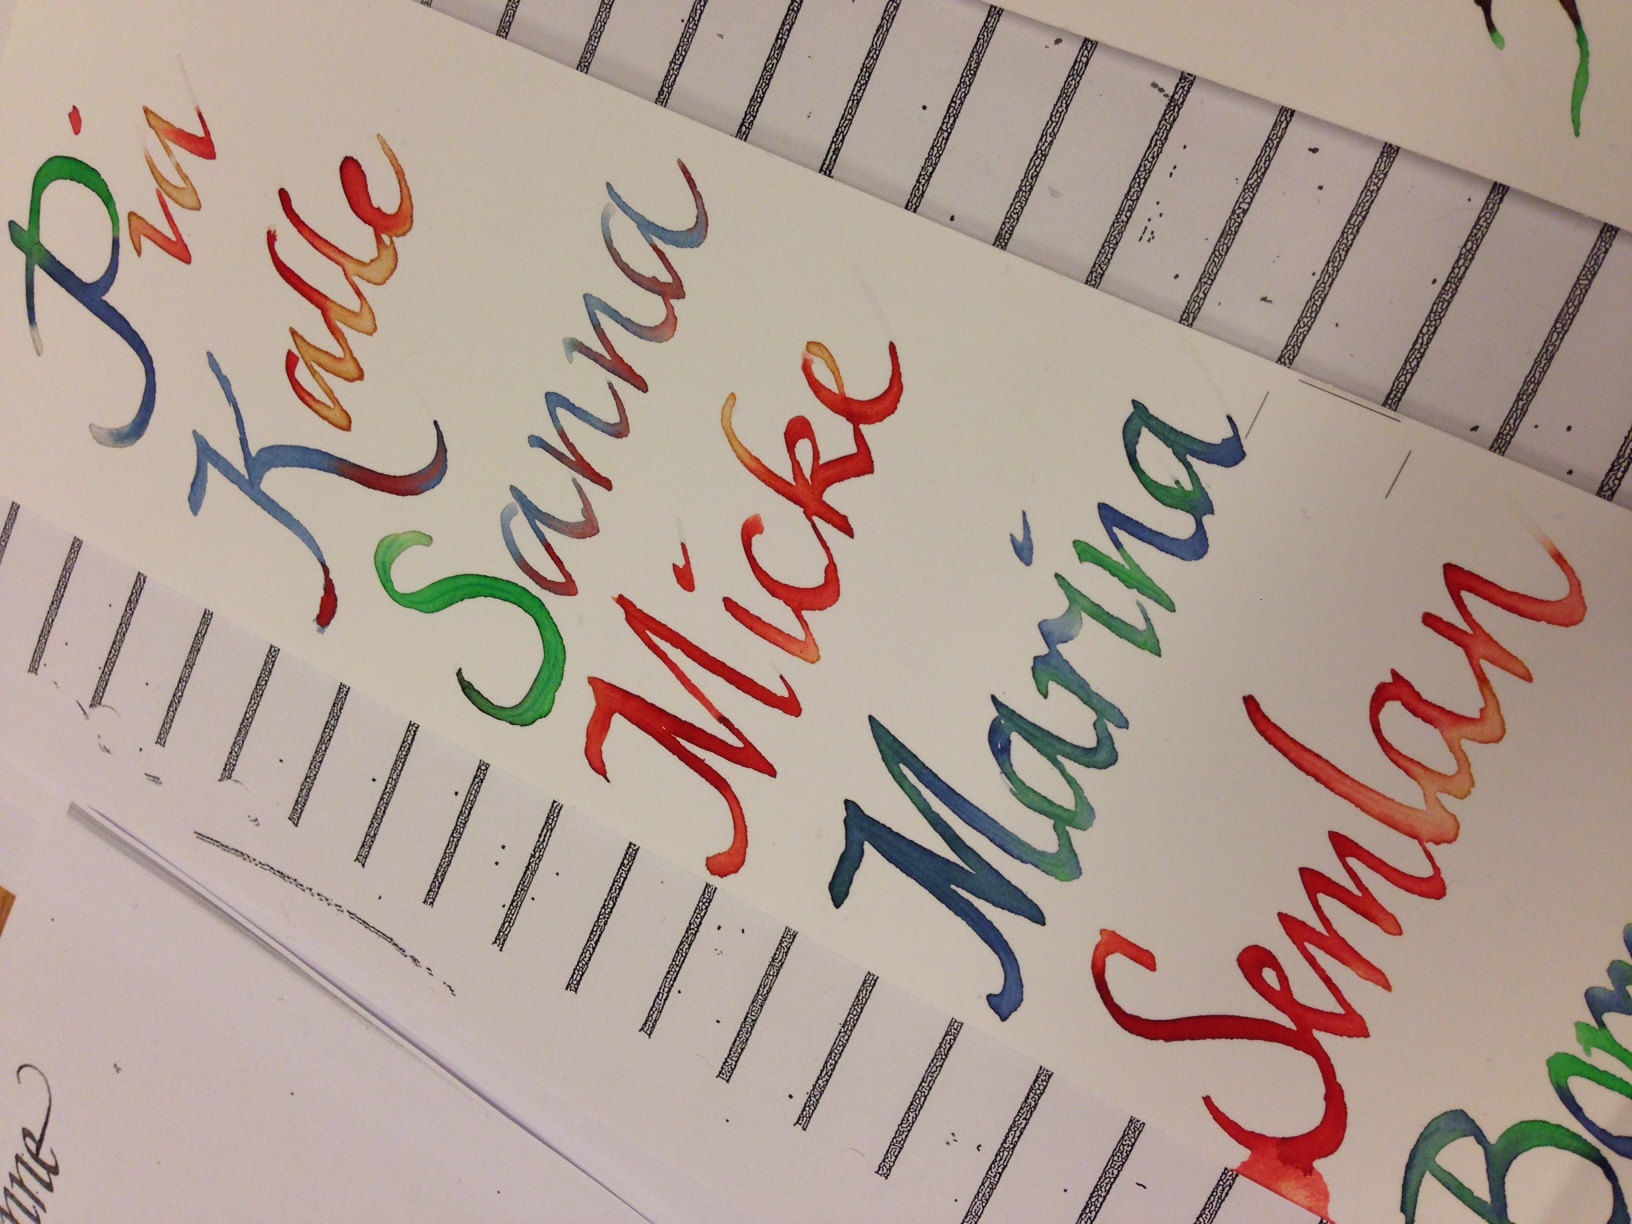 Pia
Kalle
Sanna
Micke
Marina
Semlan